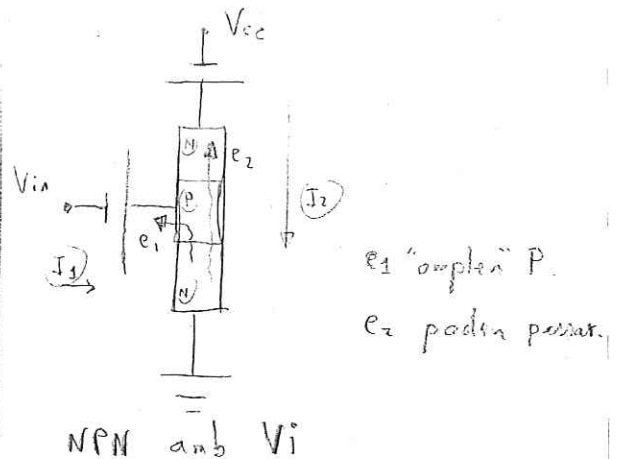 Vcc
N
e2
Vin
P
I2
e1
I1
N
e1 "omplen" P.
e2 poden passar.
NPN amb Vi